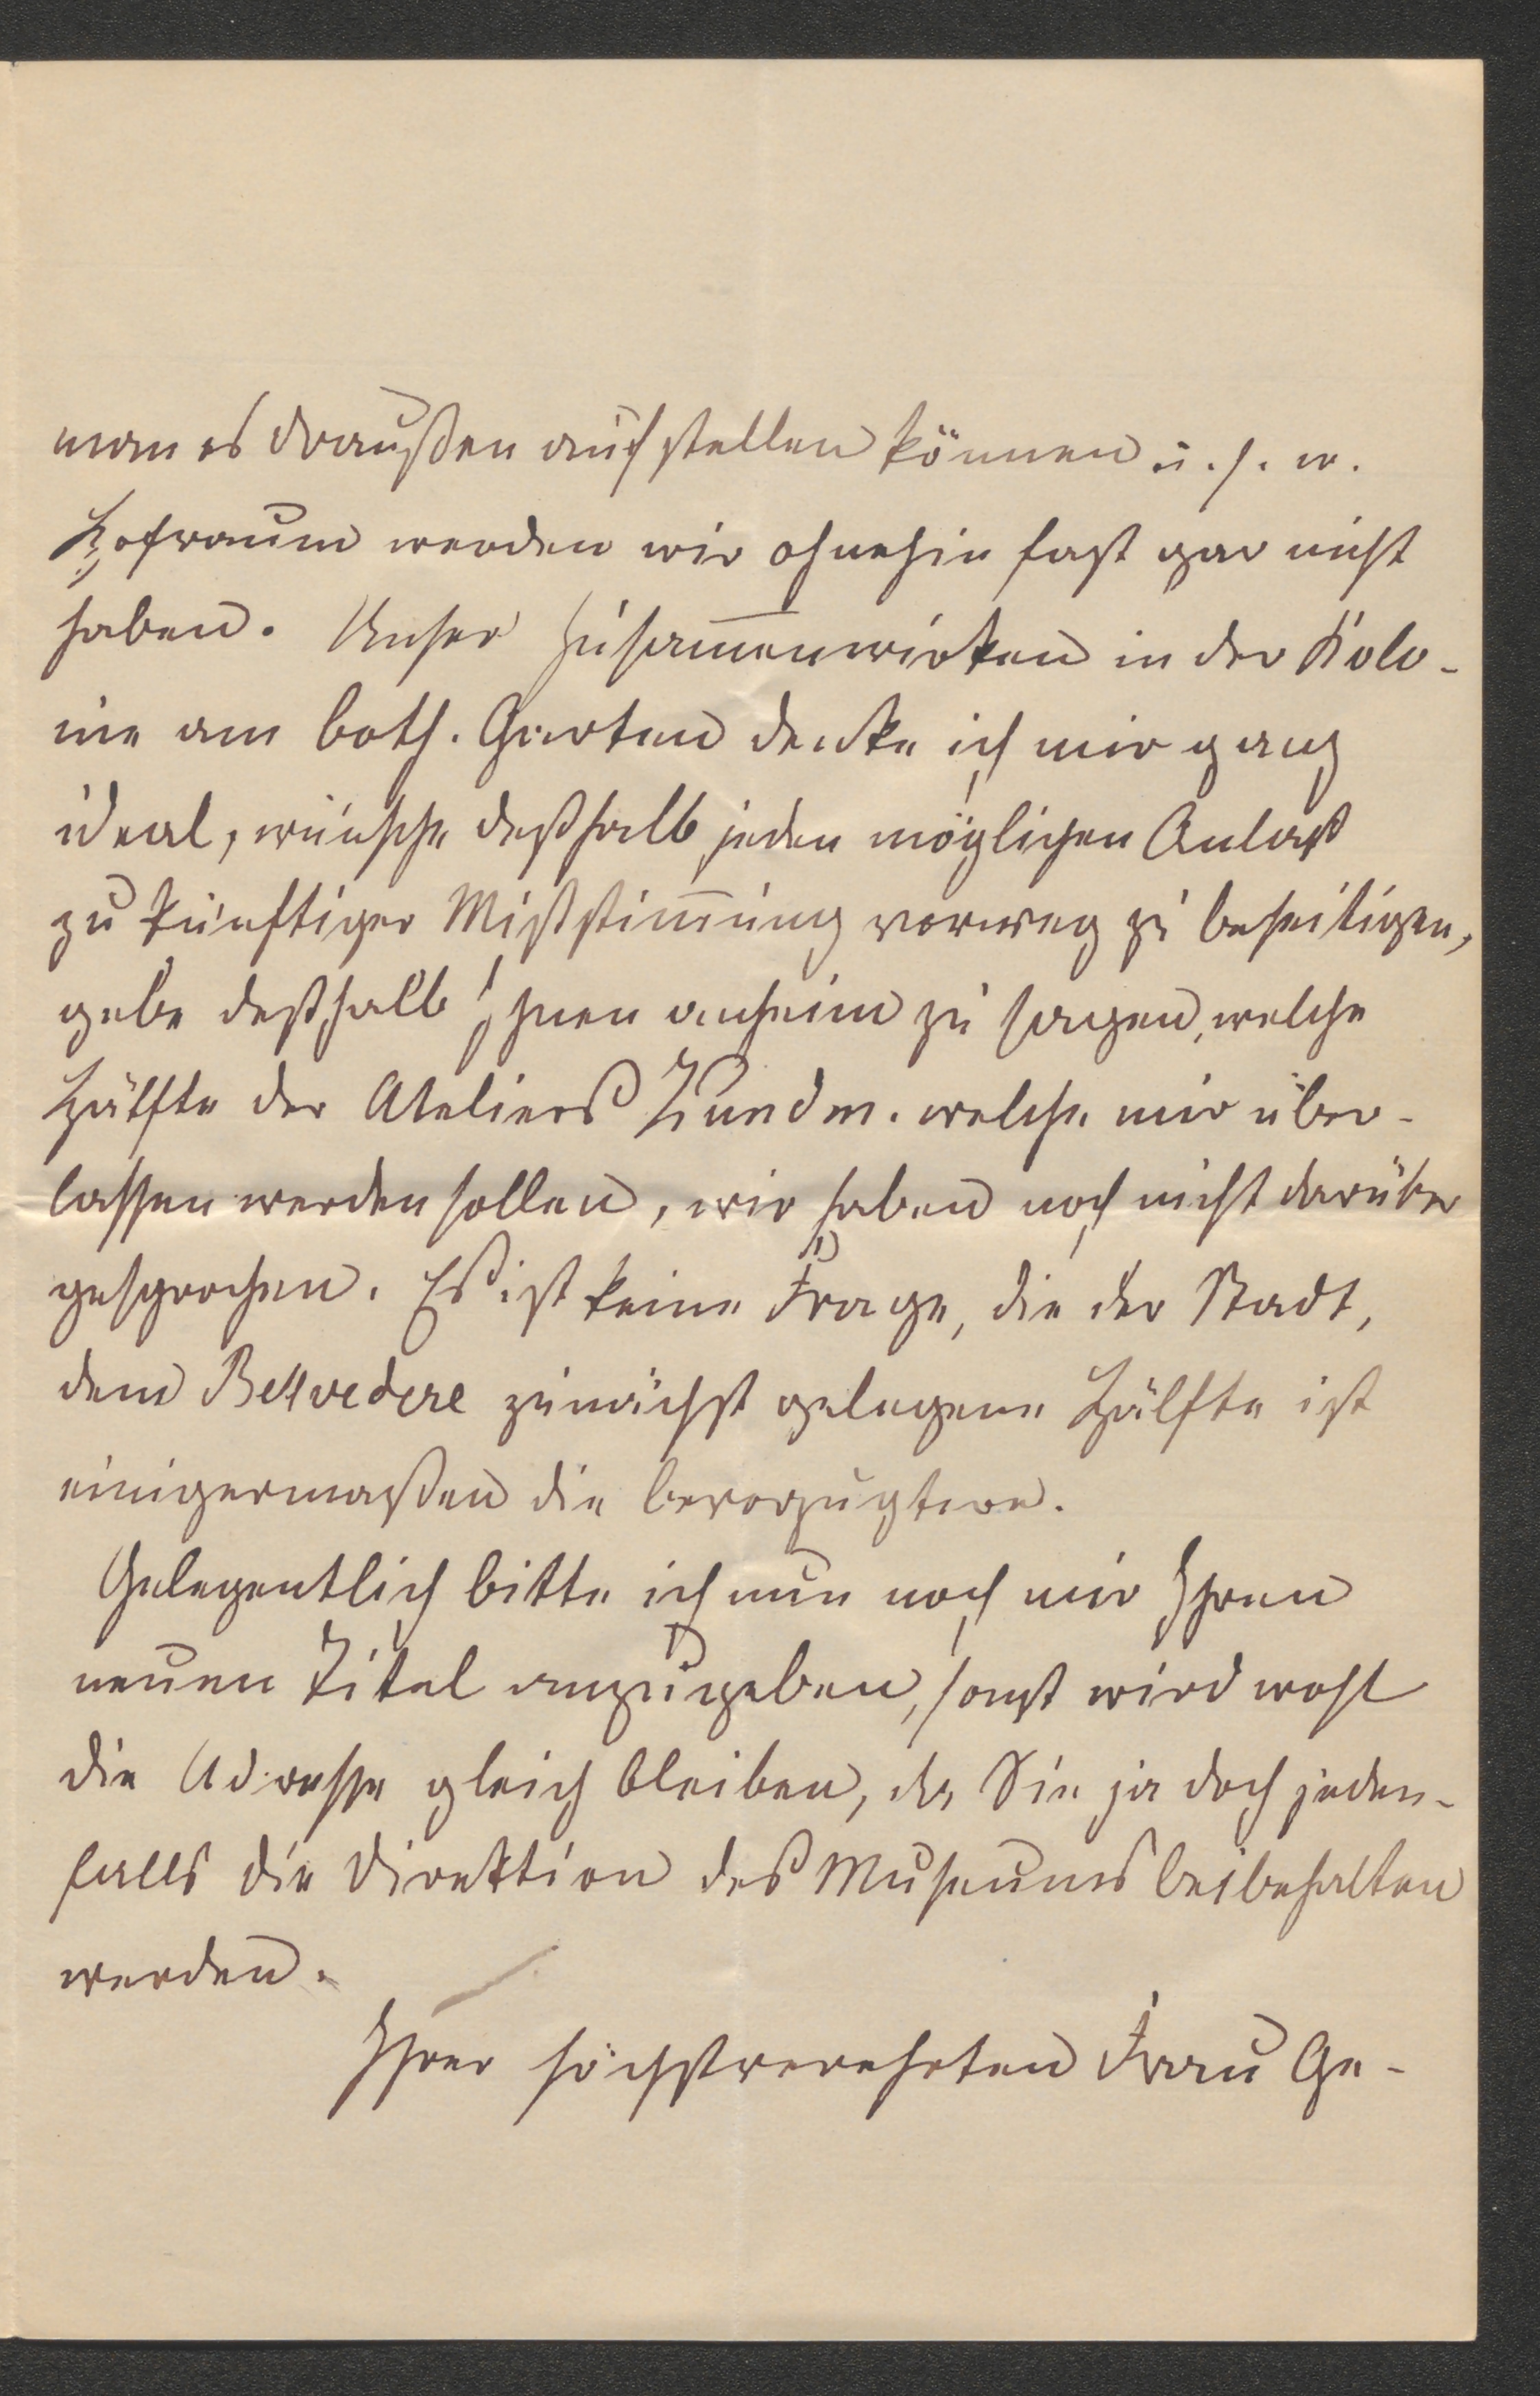 man es draußen aufstellen können u. s. w.
Hofraum werden wir ohnehin fast gar nicht
haben. Unser Zusam̅enwirken in der Kolo-
nie am both. Garten denke ich mir ganz
ideal, wünsche deßhalb jeden möglichen Anlaß
zu künftiger Mißstim̅ung vorweg zu beseitigen,
gebe deßhalb Ihnen anheim zu sagen, welche
Hälfte der Ateliers Kundm. welche mir über-
lassen werden sollen, wir haben noch nicht darüber
gesprochen. Es ist keine Frage, die der Stadt,
dem Bellvedere zunächst gelegene Hälfte ist
einigermaßen die bevorzugtere.
Gelegentlich bitte ich nun noch mir Ihren
neuen Titel anzugeben, sonst wird wohl
die Adresse gleich bleiben, da Sie ja doch jeden-
falls die Direktion des Museums beibehalten
werden.
Ihrer höchstverehrten Frau Ge-